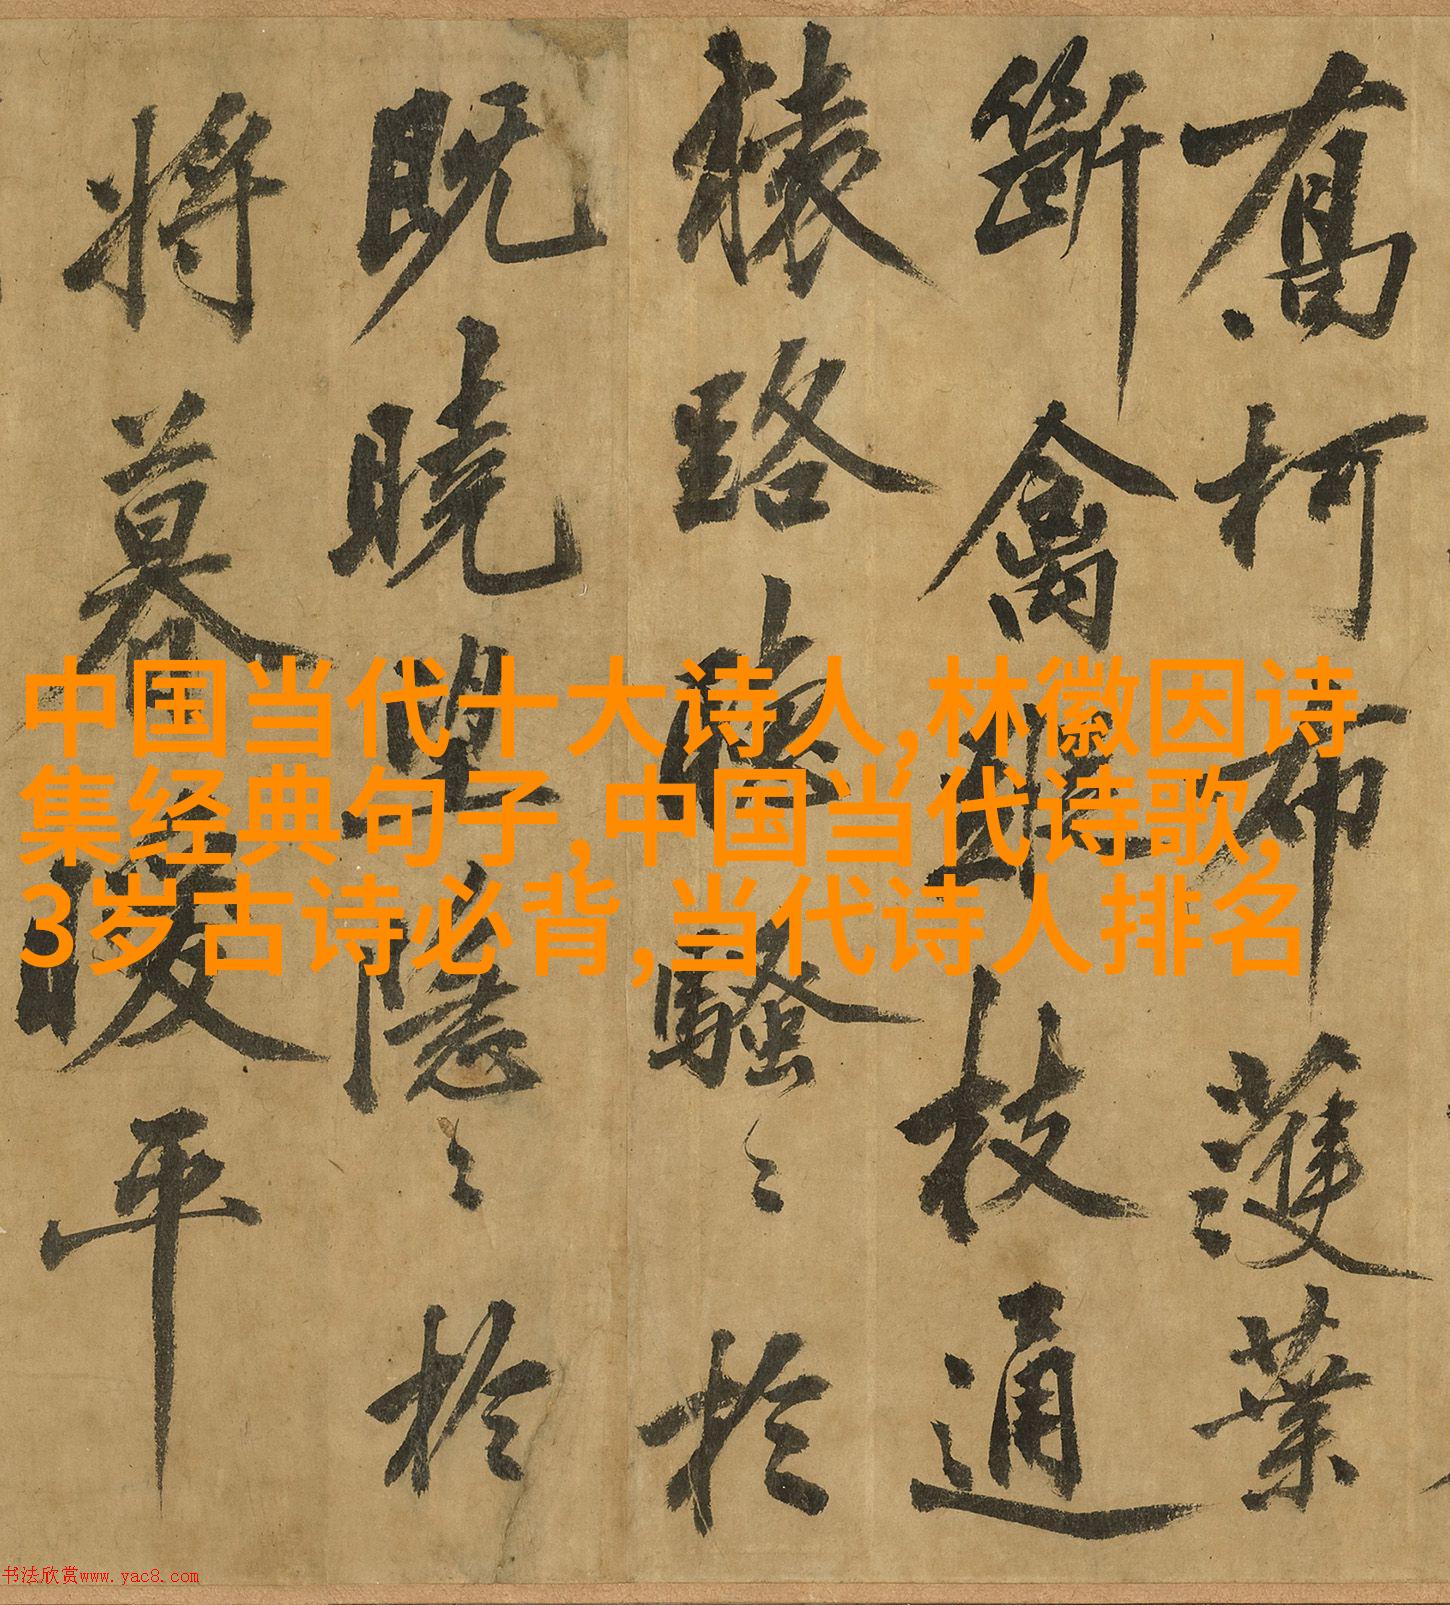 柯布濩葉
斷禽枝通
猿路聽騷〻於
既曉望隱〻於
將暮曖平
中国当代十大诗人,林徽因诗
集经典句子,中国当代诗歌,
3岁古诗必背,当代诗人排名
书法欣赏www.yac8.com